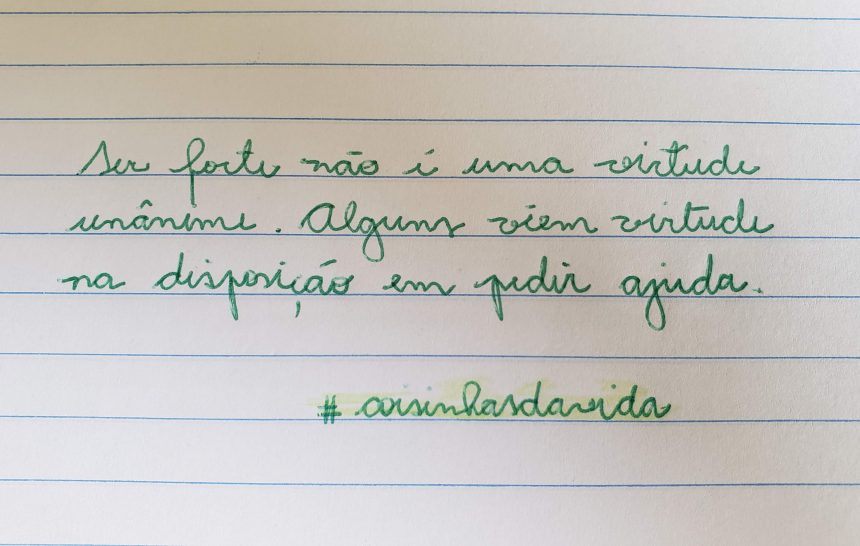 Ser forte não é uma virtude
unânime. Alguns vêem virtude
na disposição em pedir ajuda.
#coisinhasdavida